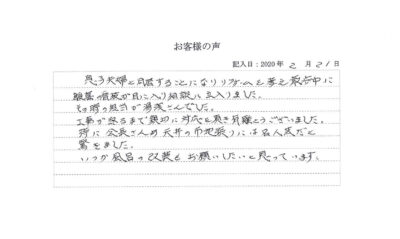 お客様の声
記入日：2020年 2月 21日
息子夫婦と同居することになりリフォームを考え最中に
の看板が目に入り相談に立入りました。
その時の担当が湯浅さんでした。
工事が終るまで親切に対応して頂き有難とうございました。
特に会長さんの天井の布地張りには名人技だと
驚きました。
いつか風呂の改装もお願いしたいと思っています。